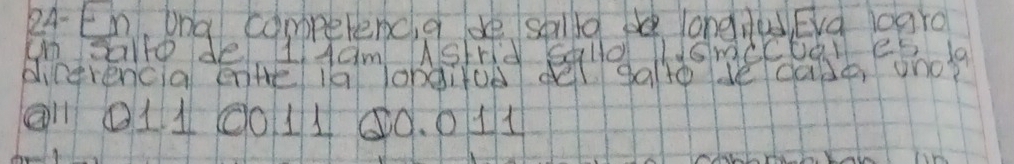 24- En una competencia de salto de longitud, Eva logro
un salto de 1.4am Astrid salto 1.5m ccual es la
diferencia entre la longitud del salto de cada uno?
a11 b1.1 c0011 d0.011